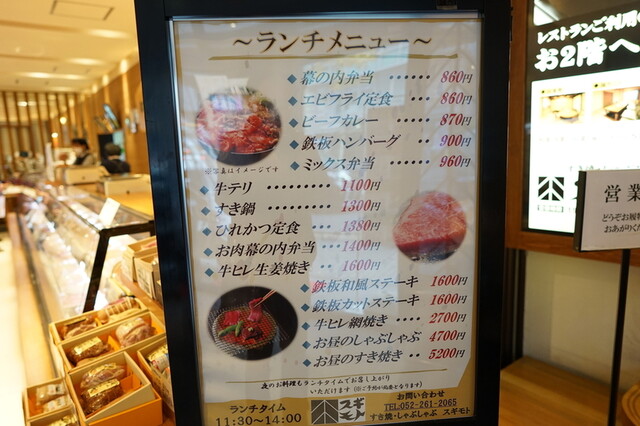 ～ランチメニュー～
◆幕の内弁当 ‥‥‥ 860円
◆エビフライ定食 ‥‥ 860円
◆ビーフカレー ‥‥‥ 870円
◆鉄板ハンバーグ ‥‥ 900円
◆ミックス弁当 ‥‥‥ 960円
※写真はイメージです
◆牛テリ ‥‥‥‥‥ 1100円
◆すき鍋 ‥‥‥‥‥ 1300円
◆ひれかつ定食 ‥‥ 1380円
◆お肉幕の内弁当 ‥‥ 1400円
◆牛ヒレ生姜焼き ‥‥ 1600円
◆鉄板和風ステーキ 1600円
◆鉄板カットステーキ 1600円
◆牛ヒレ網焼き ‥‥‥ 2700円
◆お昼のしゃぶしゃぶ 4700円
◆お昼のすき焼き ‥‥ 5200円
夜のお料理もランチタイムでお召し上がり
いただけます(※ご予約が必要となります)
ランチタイム
11:30～14:00
スギモト
お問い合わせ
TEL:052-261-2065
すき焼・しゃぶしゃぶ スギモト
レストランご利用
お2階へ
営業
どうぞお
おあがりく